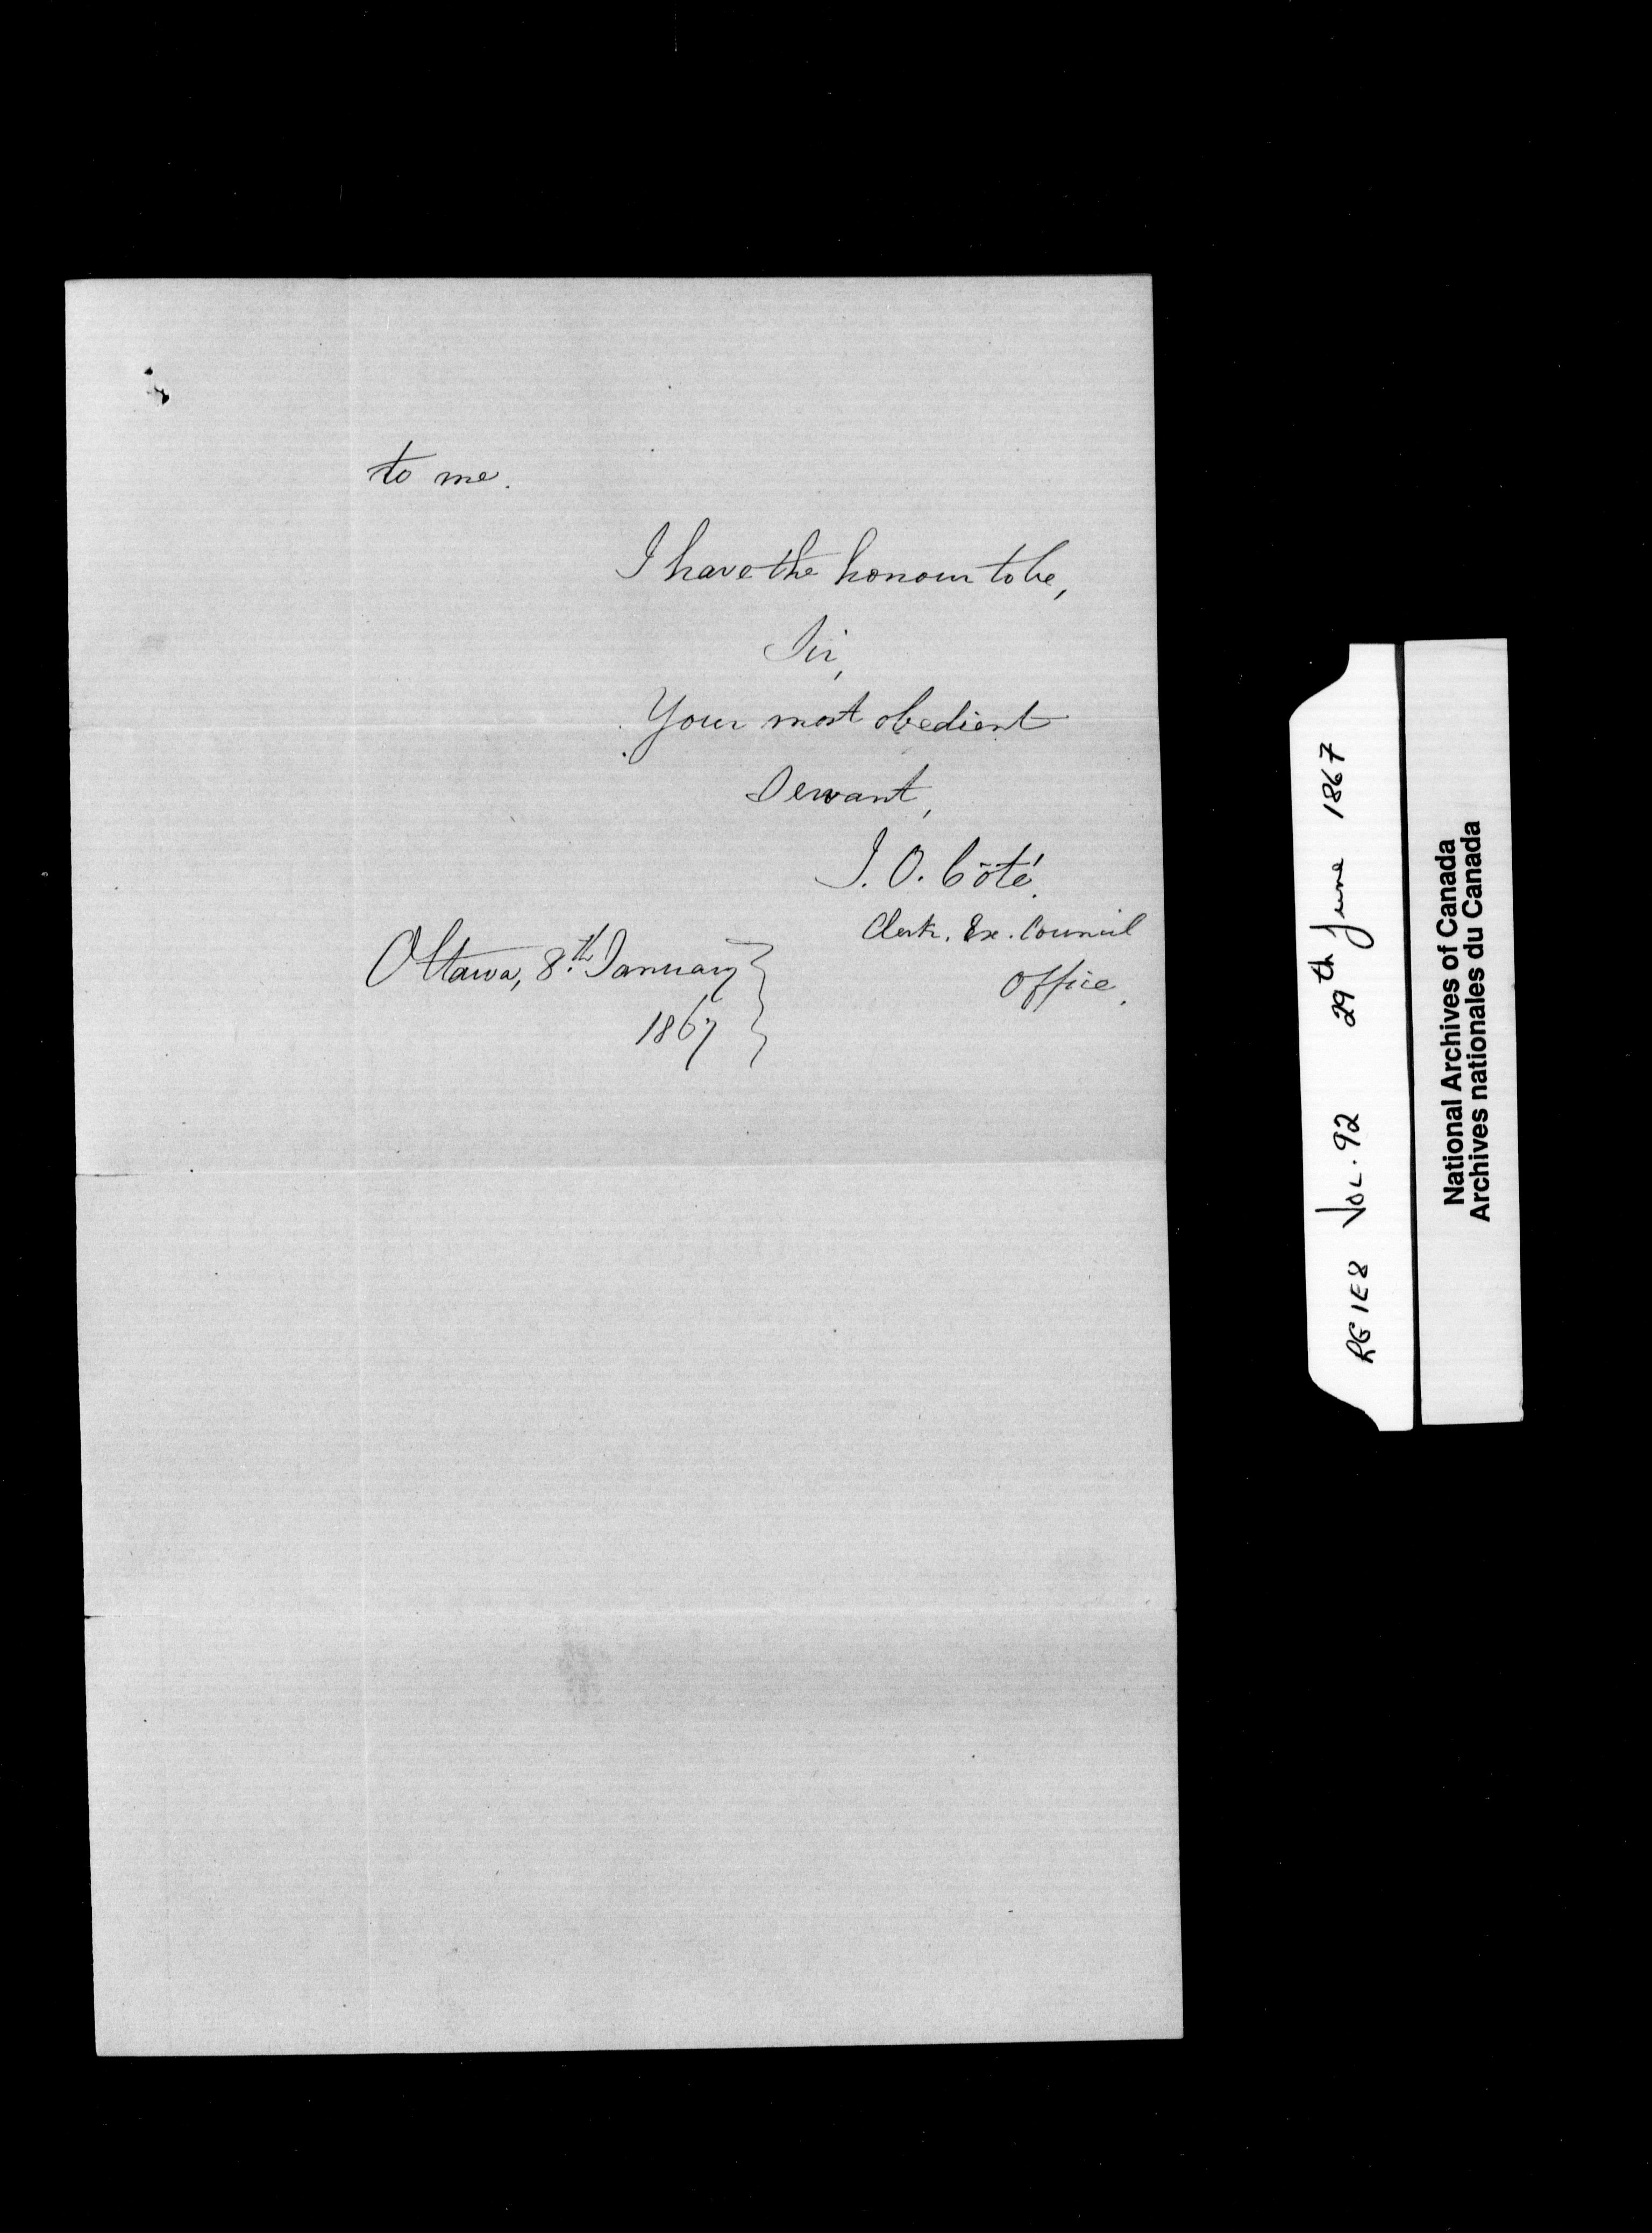 to me.
I have the honour to be,
Sir,
Your most obedient
Servant,
J. O. Côté.
Clerk. Ex. Council
Office.
Ottawa, 8th. January
1867
RG 1E8 VOL. 92 29th June 1867
National Archives of Canada
Archives nationales du Canada